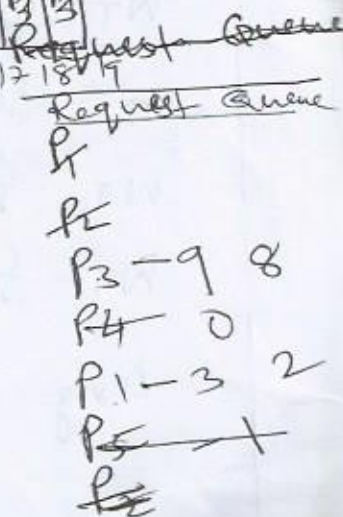 3 3
Request Queue
17 18 19
Request Queue
P1
P2
P3 - 9 8
P4 0
P1 - 3 2
P5 - 1
P2